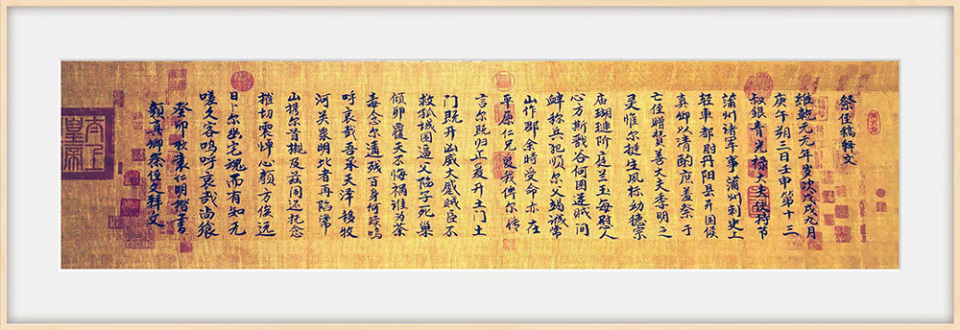 祭侄稿释文
维乾元元年岁次戊戌九月
庚午朔三日壬申第十三
叔银青光禄大夫使持节
蒲州诸军事蒲州刺史上
轻车都尉丹阳县开国侯
真卿以清酌庶羞祭于
亡侄赠赞善大夫季明之
灵惟尔挺生夙标幼德宗
庙瑚琏阶庭兰玉每慰人
心方期戬谷何图逆贼间
衅称兵犯顺尔父竭诚常
山作郡余时受命亦在
平原仁兄爱我俾尔传
言尔既归止爰开土门土
门既开凶威大蹙贼臣不
救孤城围逼父陷子死巢
倾卵覆天不悔祸谁为荼
毒念尔遘残百身何赎呜
呼哀哉吾承天泽移牧
河关泉明比者再陷常
山携尔首榇及兹同还抚念
摧切震悼心颜方俟远
日卜尔幽宅魂而有知无
嗟久客呜呼哀哉尚飨
癸卯秋袁仁明书
颜真卿祭侄文释文
太上皇帝